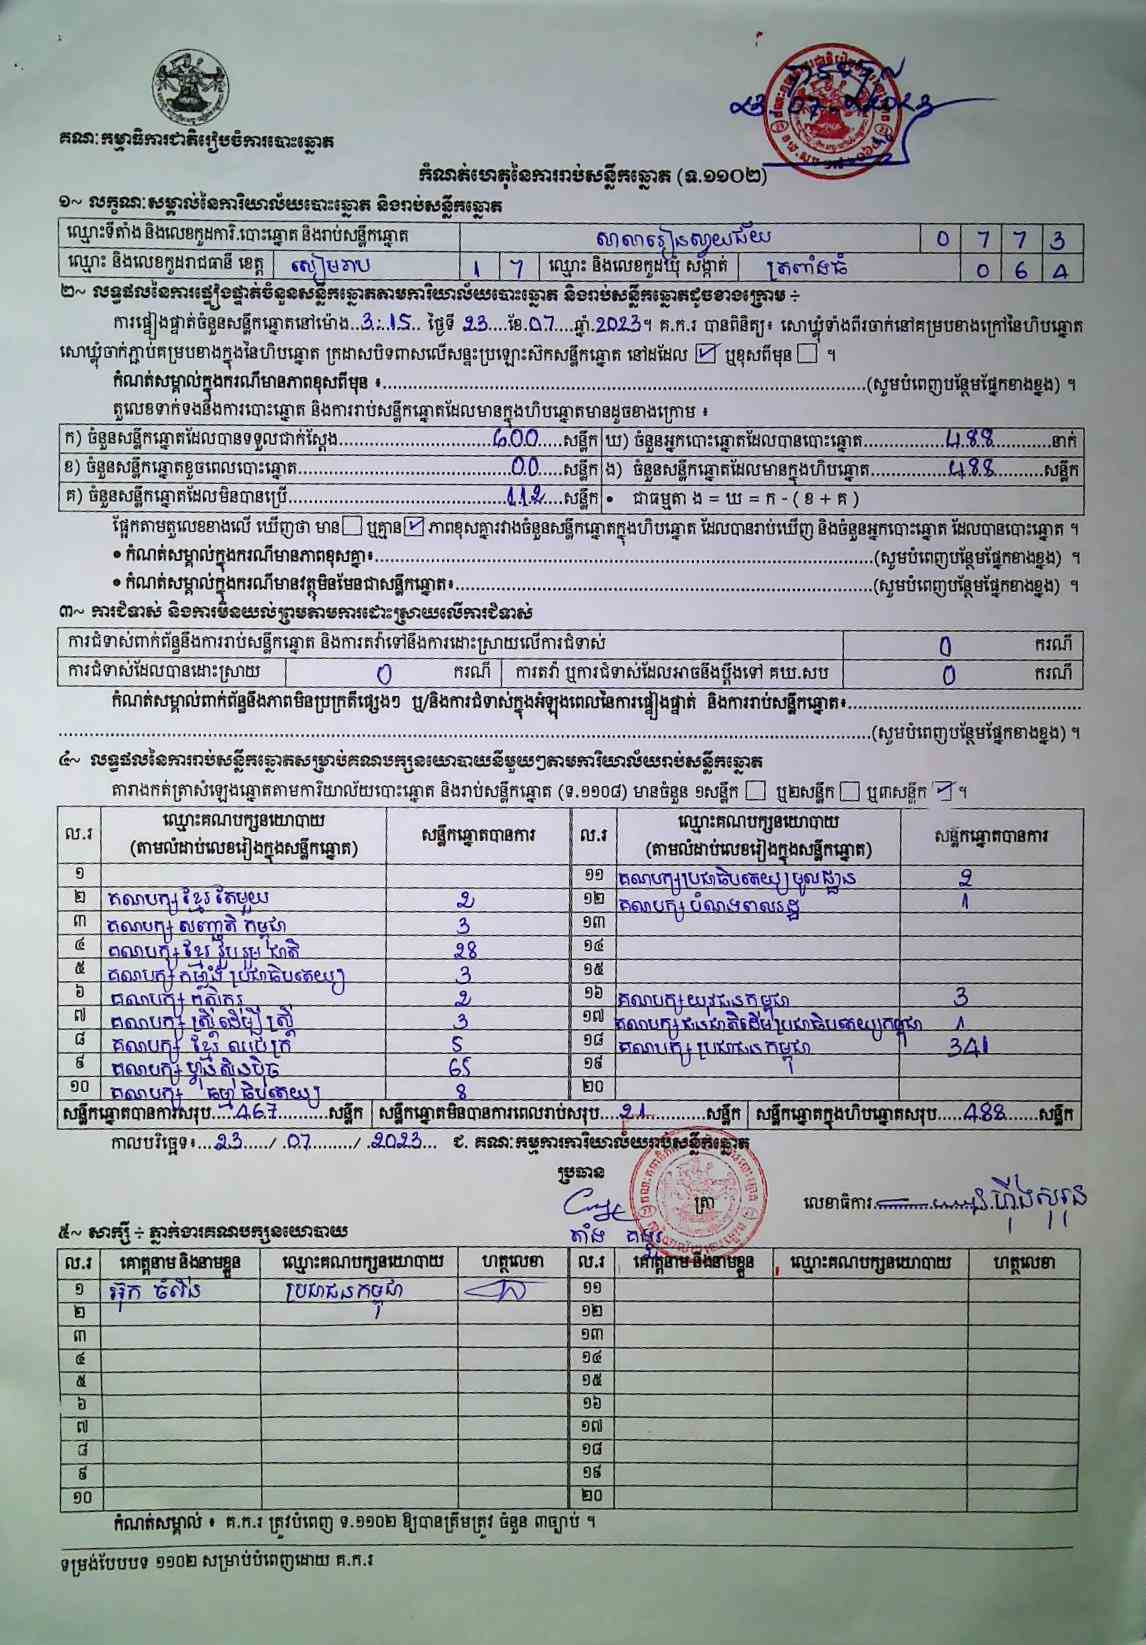 គណៈកម្មាធិការជាតិរៀបចំការបោះឆ្នោត
២៣ 07 ២០២៣
កំណត់ហេតុនៃការរាប់សន្លឹកឆ្នោត (ទ.១១០២)
១~ លក្ខណៈសម្គាល់នៃការិយាល័យបោះឆ្នោត និងរាប់សន្លឹកឆ្នោត
ឈ្មោះទីតាំង និងលេខកូដការិ.បោះឆ្នោត និងរាប់សន្លឹកឆ្នោត សាលារៀនស្វាយជ័យ 0 7 7 3
ឈ្មោះ និងលេខកូដរាជធានី ខេត្ត សៀមរាប 1 7 ឈ្មោះ និងលេខកូដឃុំ សង្កាត់ ត្រពាំងធំ 0 6 4
២~ លទ្ធផលនៃការផ្ទៀងផ្ទាត់ចំនួនសន្លឹកឆ្នោតតាមការិយាល័យបោះឆ្នោត និងរាប់សន្លឹកឆ្នោតដូចខាងក្រោម ÷
ការផ្ទៀងផ្ទាត់ចំនួនសន្លឹកឆ្នោតនៅម៉ោង..3:15.. ថ្ងៃទី 23....ខែ.07....ឆ្នាំ.2023។ គ.ក.រ បានពិនិត្យ៖ សោឃ្លុំទាំងពីរចាក់នៅគម្របខាងក្រៅនៃហិបឆ្នោត
សោឃ្លុំចាក់ភ្ជាប់គម្របខាងក្នុងនៃហិបឆ្នោត ក្រដាសបិទពាសលើសន្ទះប្រឡោះស៊កសន្លឹកឆ្នោត នៅដដែល ☑ ឬខុសពីមុន ☐ ។
កំណត់សម្គាល់ក្នុងករណីមានភាពខុសពីមុន ៖..........(សូមបំពេញបន្ថែមផ្នែកខាងខ្នង) ។
តួលេខទាក់ទងនឹងការបោះឆ្នោត និងការរាប់សន្លឹកឆ្នោតដែលមានក្នុងហិបឆ្នោតមានដូចខាងក្រោម ៖
ក) ចំនួនសន្លឹកឆ្នោតដែលបានទទួលជាក់ស្តែង..........600....សន្លឹក ឃ) ចំនួនអ្នកបោះឆ្នោតដែលបានបោះឆ្នោត..........488..........នាក់
ខ) ចំនួនសន្លឹកឆ្នោតខូចពេលបោះឆ្នោត..........00....សន្លឹក ង) ចំនួនសន្លឹកឆ្នោតដែលមានក្នុងហិបឆ្នោត..........488..........សន្លឹក
គ) ចំនួនសន្លឹកឆ្នោតដែលមិនបានប្រើ..........112....សន្លឹក • ជាធម្មតា ង = ឃ = ក - ( ខ + គ )
ផ្អែកតាមតួលេខខាងលើ ឃើញថា មាន ☐ ឬគ្មាន ☑ ភាពខុសគ្នារវាងចំនួនសន្លឹកឆ្នោតក្នុងហិបឆ្នោត ដែលបានរាប់ឃើញ និងចំនួនអ្នកបោះឆ្នោត ដែលបានបោះឆ្នោត ។
• កំណត់សម្គាល់ក្នុងករណីមានភាពខុសគ្នា៖..........(សូមបំពេញបន្ថែមផ្នែកខាងខ្នង) ។
• កំណត់សម្គាល់ក្នុងករណីមានវត្ថុមិនមែនជាសន្លឹកឆ្នោត៖..........(សូមបំពេញបន្ថែមផ្នែកខាងខ្នង) ។
៣~ ការជំទាស់ និងការមិនយល់ព្រមតាមការដោះស្រាយលើការជំទាស់
ការជំទាស់ពាក់ព័ន្ធនឹងការរាប់សន្លឹកឆ្នោត និងការតវ៉ាទៅនឹងការដោះស្រាយលើការជំទាស់ 0 ករណី
ការជំទាស់ដែលបានដោះស្រាយ 0 ករណី ការតវ៉ា ឬការជំទាស់ដែលអាចនឹងប្តឹងទៅ គឃ.សប 0 ករណី
កំណត់សម្គាល់ពាក់ព័ន្ធនឹងភាពមិនប្រក្រតីផ្សេងៗ ឬ/និងការជំទាស់ក្នុងអំឡុងពេលនៃការផ្ទៀងផ្ទាត់ និងការរាប់សន្លឹកឆ្នោត៖..........
..........(សូមបំពេញបន្ថែមផ្នែកខាងខ្នង) ។
៤~ លទ្ធផលនៃការរាប់សន្លឹកឆ្នោតសម្រាប់គណបក្សនយោបាយនីមួយៗតាមការិយាល័យរាប់សន្លឹកឆ្នោត
តារាងកត់ត្រាសំឡេងឆ្នោតតាមការិយាល័យបោះឆ្នោត និងរាប់សន្លឹកឆ្នោត (ទ.១១០៨) មានចំនួន ១សន្លឹក ☐ ឬ២សន្លឹក ☐ ឬ៣សន្លឹក ☑ ។
ល.រ ឈ្មោះគណបក្សនយោបាយ (តាមលំដាប់លេខរៀងក្នុងសន្លឹកឆ្នោត) សន្លឹកឆ្នោតបានការ ល.រ ឈ្មោះគណបក្សនយោបាយ (តាមលំដាប់លេខរៀងក្នុងសន្លឹកឆ្នោត) សន្លឹកឆ្នោតបានការ
១ ១១ គណបក្សប្រជាធិបតេយ្យមូលដ្ឋាន 2
២ គណបក្ស ខ្មែរ តែមួយ 2 ១២ គណបក្ស បំណងពលរដ្ឋ 1
៣ គណបក្ស សញ្ជាតិ កម្ពុជា 3 ១៣
៤ គណបក្ស ខ្មែរ រួបរួម ជាតិ 28 ១៤
៥ គណបក្ស កម្លាំង ប្រជាធិបតេយ្យ 3 ១៥
៦ គណបក្ស កសិករ 2 ១៦ គណបក្ស យុវជន កម្ពុជា 3
៧ គណបក្ស ស្ត្រី ដើម្បី ស្ត្រី 3 ១៧ គណបក្សជនជាតិដើមប្រជាធិបតេយ្យកម្ពុជា 1
៨ គណបក្ស ខ្មែរ ឈប់ក្រ 5 ១៨ គណបក្ស ប្រជាជន កម្ពុជា 341
៩ គណបក្ស ហ្វ៊ុនស៊ិនប៉ិច 65 ១៩
១០ គណបក្ស ធម្មាធិបតេយ្យ 8 ២០
សន្លឹកឆ្នោតបានការសរុប....467..........សន្លឹក សន្លឹកឆ្នោតមិនបានការពេលរាប់សរុប....21..........សន្លឹក សន្លឹកឆ្នោតក្នុងហិបឆ្នោតសរុប....488......សន្លឹក
កាលបរិច្ឆេទ៖...23..../.07......../.2023... ជ. គណៈកម្មការការិយាល័យរាប់សន្លឹកឆ្នោត
ប្រធាន
ត្រា លេខាធិការ
៥~ សាក្សី ÷ ភ្នាក់ងារគណបក្សនយោបាយ
ល.រ គោត្តនាម និងនាមខ្លួន ឈ្មោះគណបក្សនយោបាយ ហត្ថលេខា ល.រ គោត្តនាម និងនាមខ្លួន ឈ្មោះគណបក្សនយោបាយ ហត្ថលេខា
១ ប្រជាជនកម្ពុជា ១១
២ ១២
៣ ១៣
៤ ១៤
៥ ១៥
៦ ១៦
៧ ១៧
៨ ១៨
៩ ១៩
១០ ២០
កំណត់សម្គាល់ ៖ គ.ក.រ ត្រូវបំពេញ ទ.១១០២ ឱ្យបានត្រឹមត្រូវ ចំនួន ៣ច្បាប់ ។
ទម្រង់បែបបទ ១១០២ សម្រាប់បំពេញដោយ គ.ក.រ